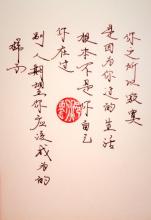 你之所以寂寞
是因为你过的生活
根本不是你自己
你在过
别人期望你应该成为的
样子